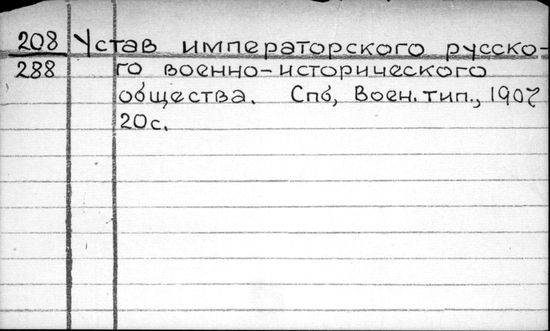 208 Устав императорского русско-
288 го военно-исторического
общества. Спб, Воен. тип., 1907
20с.